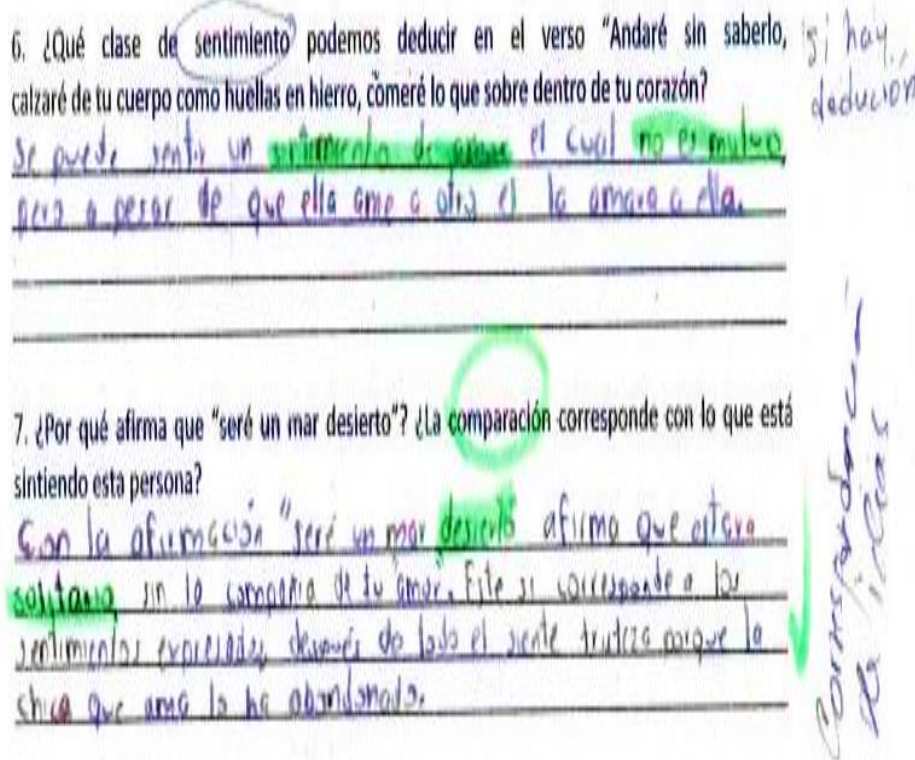 6. ¿Qué clase de sentimiento podemos deducir en el verso "Andaré sin saberlo,
calzaré de tu cuerpo como huellas en hierro, comeré lo que sobre dentro de tu corazón?
Se puede sentir un sentimiento de amor el cual no es mutuo,
pero a pesar de que ella ame a otro el la amara a ella.
si hay
deducion
7. ¿Por qué afirma que "seré un mar desierto"? ¿La comparación corresponde con lo que está
sintiendo esta persona?
Con la afirmación "seré un mar desierto" afirma que estara
solitario sin la compañia de tu amor. Este si corresponde a los
sentimientos expresados, después de todo el siente tristeza porque la
chica que ama lo ha abandonado.
de ideas